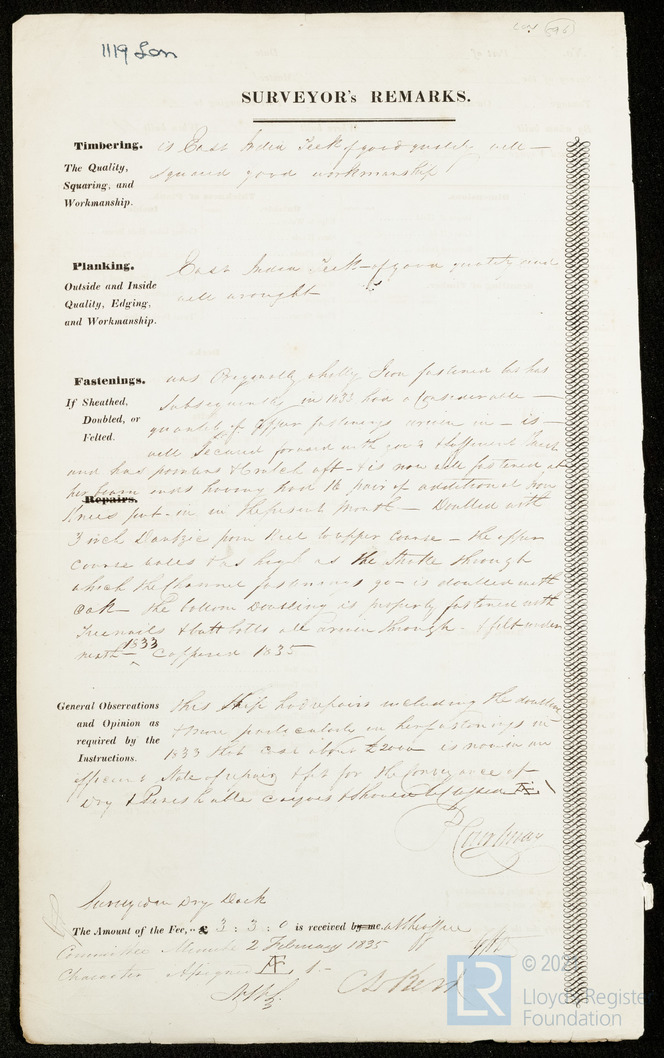 Lon 596
1119 Lon
SURVEYOR's REMARKS.
Timbering. is East India Teek of good quality well
The Quality, Squaring, and Workmanship. squared good workmanship
Planking. East India Teek of good quality and
Outside and Inside Quality, Edging, and Workmanship. well wrought
Fastenings. was Originally wholly Iron fastened but has
If Sheathed, Doubled, or Felted. Subsequently in 1833 had a Considerable
quantity of Copper fastenings driven in - is
well Secured forward with
and has pointers & Crutch aft - & is now well fastened at
Repairs. her beam ends having had 16 pair of additional Iron
Knees put in in the present Month - Doubled with
3 inch Dantzic from Keel to upper course - the upper
course wales & as high as the Strake through
which the Channel fastenings go - is doubled with
Oak - the bottom Doubling is properly fastened with
Treenails & butt bolts all driven through - & felt under
1833
neath - Coppered 1835
General Observations and Opinion as required by the Instructions. This Ship had repairs including the doubling
& more particularly in her fastenings in
1833 that cost about £2000 is now in an
Efficient State of repair & fit for the Conveyance of
Dry & Perishable cargoes & should be classed Æ 1
Surveyed in Dry Dock
The Amount of the Fee, -- £ 3 : 3 : 0 is received by me. at the Office
Committee Minute 2 February 1835
Character assigned Æ 1.-
LR
© 202
Lloyd's Register
Foundation